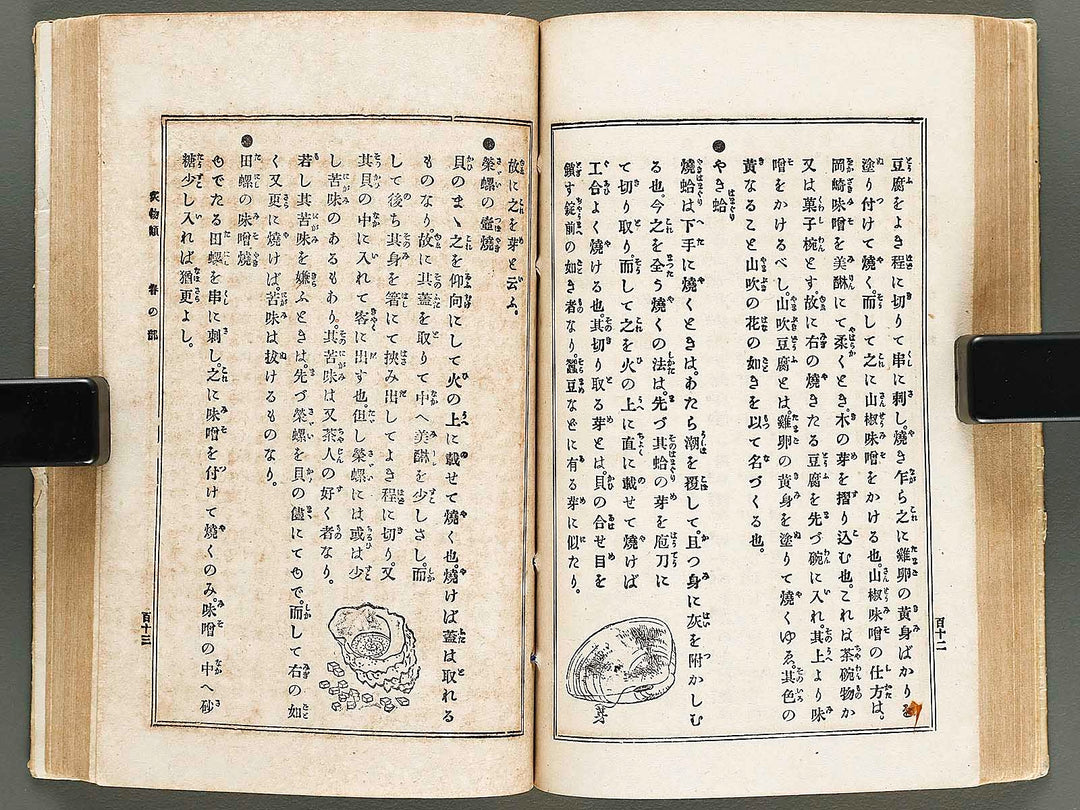 豆腐をよき程に切りて串に刺し。燒き乍ら之に雞卵の黃身ばかりを
塗り付けて燒く。而して之に山椒味噌をかける也。山椒味噌の仕方は。
岡崎味噌を美醂にて柔くとき。木の芽を摺り込む也。これは茶碗物か
又は菓子椀とす。故に右の燒きたる豆腐を先づ碗に入れ。其上より味
噌をかけるべし。山吹豆腐とは。雞卵の黃身を塗りて燒くゆゑ。其色の
黃なること山吹の花の如きを以て名づくる也。
やき蛤
燒蛤は下手に燒くときは。あたら潮を覆して且つ身に灰を附かしむ
る也今之を全う燒くの法は。先づ其蛤の芽を庖刀に
て切り取り而して之を火の上に直に載せて燒けば
工合よく燒ける也。其切り取る芽とは。貝の合せ目を
鎖す錠前の如き者なり。蠶豆などに有る芽に似たり。
芽
百十二
故に之を芽と云ふ。
榮螺の壺燒
貝のまゝ之を仰向にして火の上に載せて燒く也。燒けば蓋は取れる
ものなり。故に其蓋を取りて中へ美醂を少しさし。而
して後ち其身を箸にて挾み出してよき程に切り。又
其貝の中に入れて客に出す也。但し榮螺には或は少
し苦味のあるもあり。其苦味は又茶人の好く者なり。
若し其苦味を嫌ふときは。先づ榮螺を貝の儘にてゆで。而して右の如
く又更に燒けば。苦味は拔けるものなり。
田螺の味噌燒
ゆでたる田螺を串に刺し。之に味噌を付けて燒くのみ。味噌の中へ砂
糖少し入れば猶更よし。
炙物類 春の部
百十三